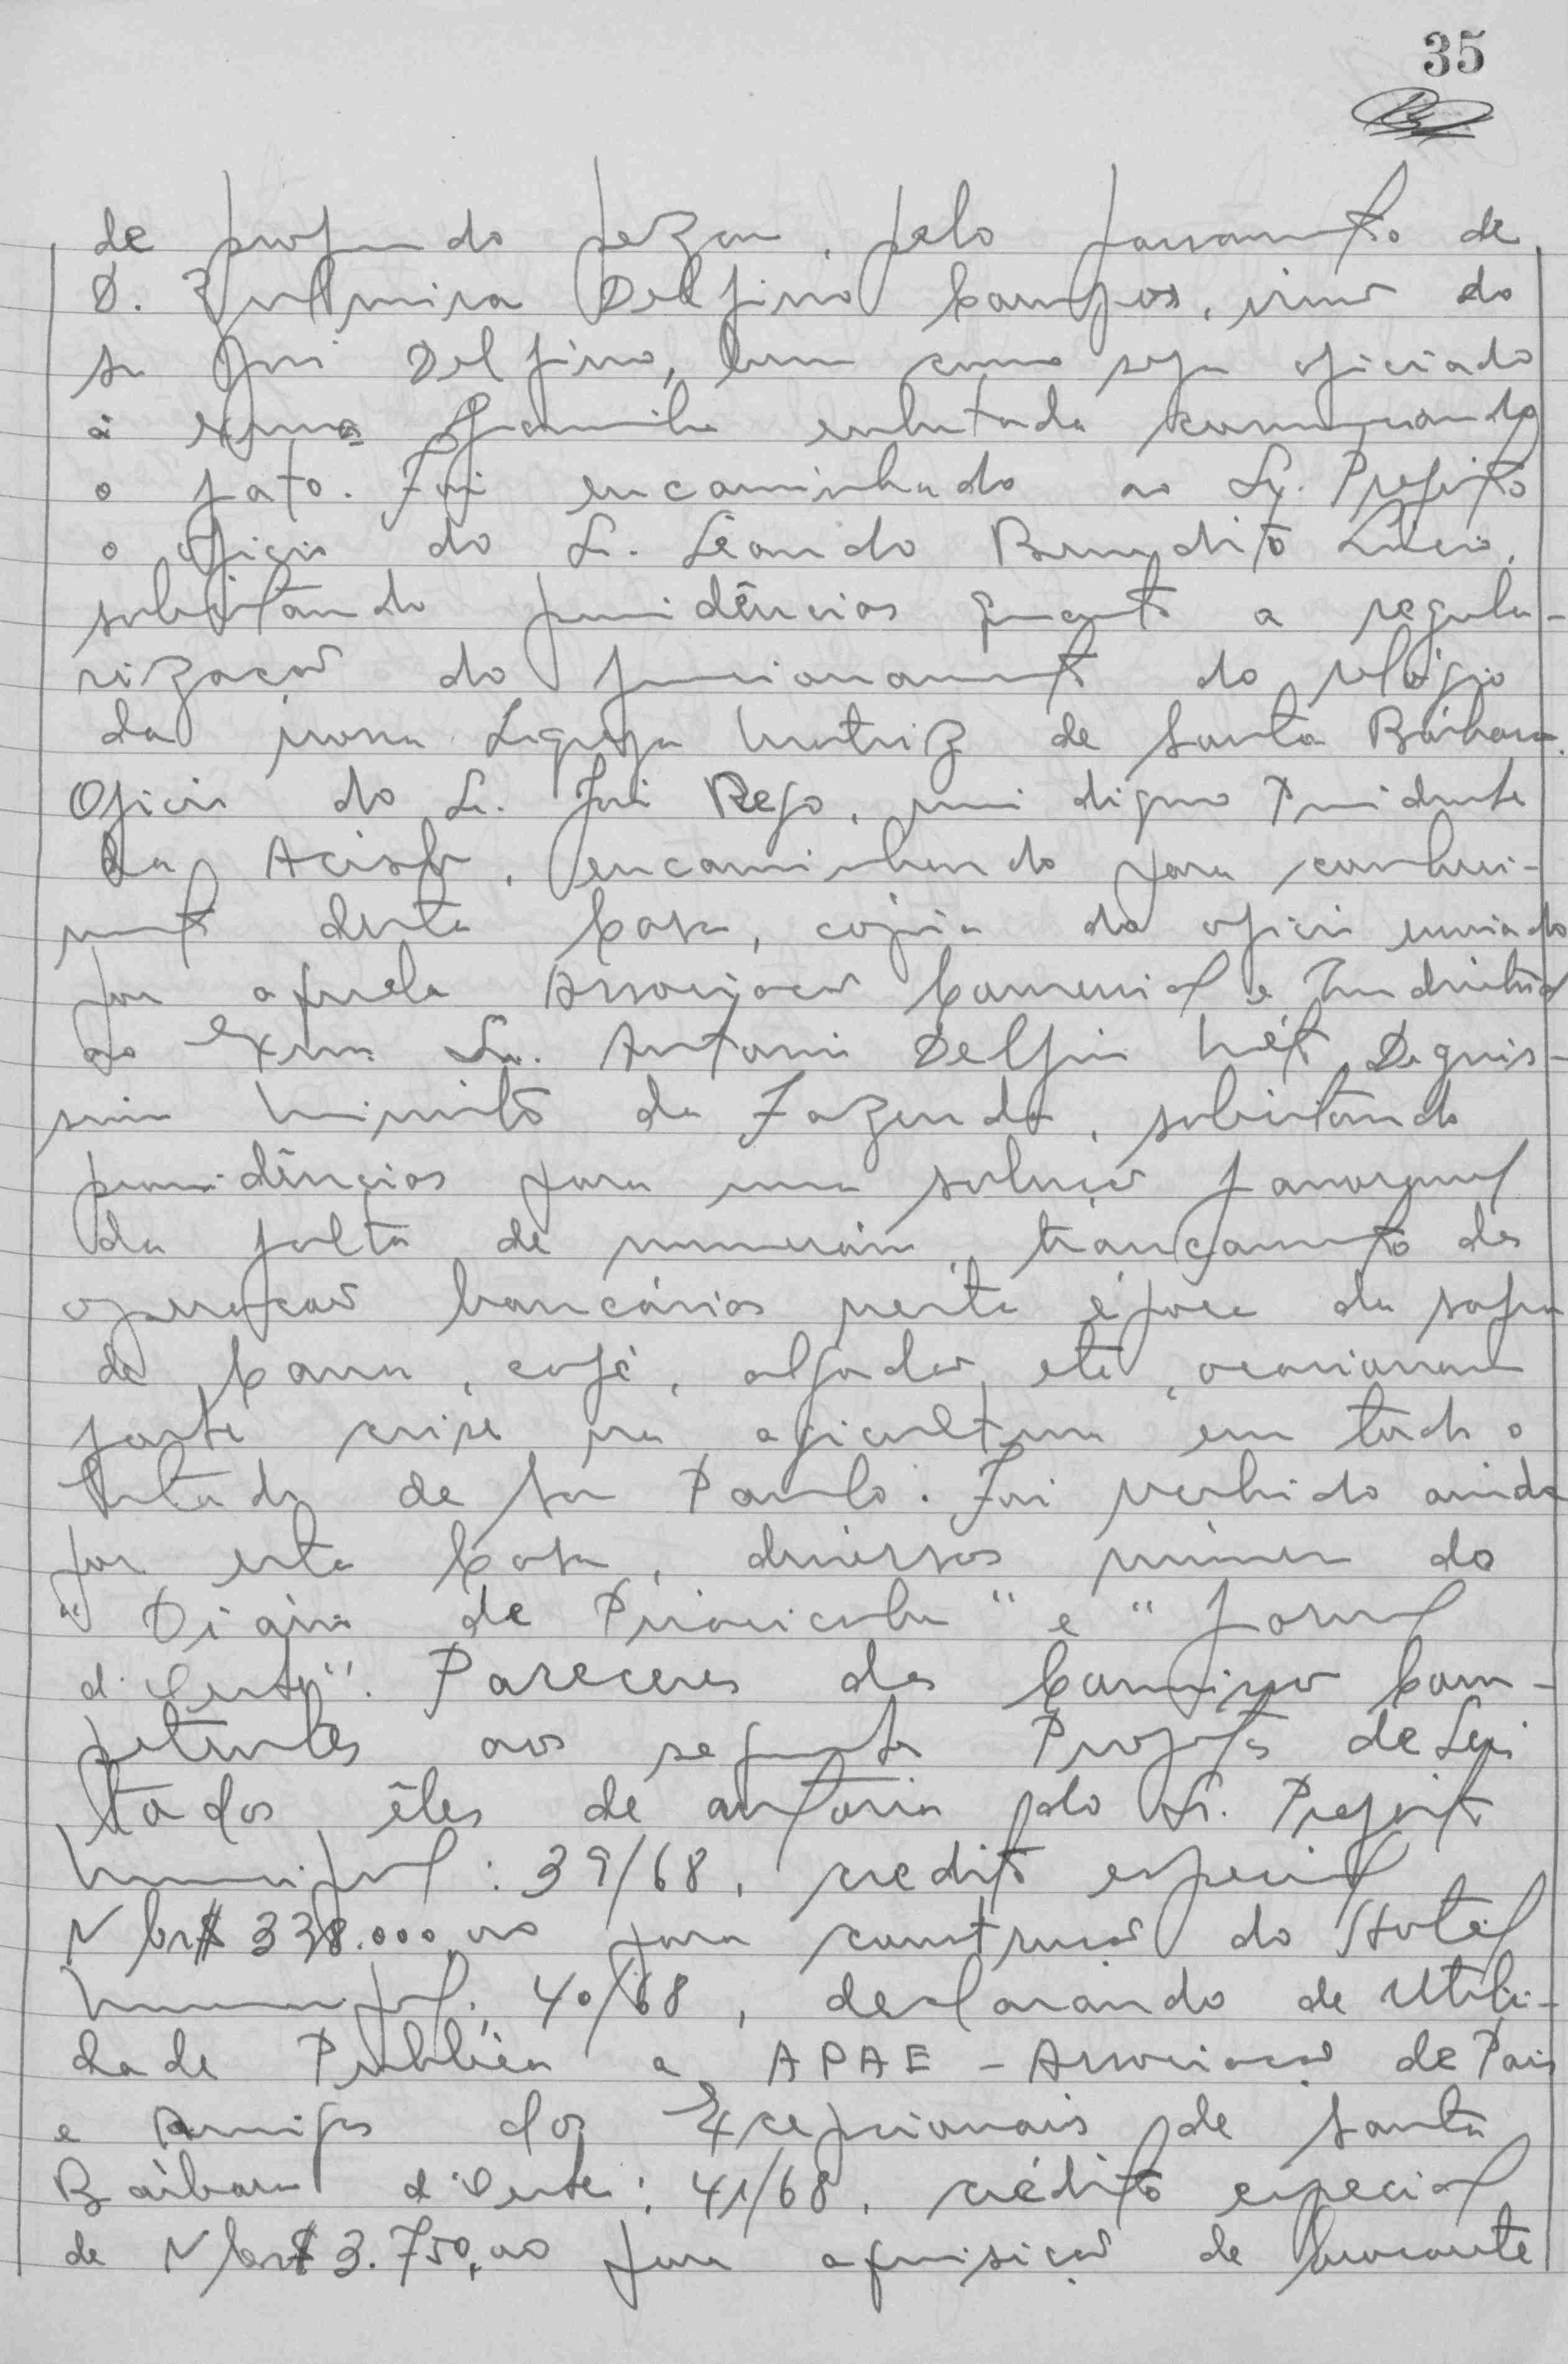 35
de profundo pezar, pelo passamento de
D. Zulmira Delfino Campos, irmã do
sr José Delfino, bem como seja oficiado
à exma família enlutada comunicando
o fato. Foi encaminhado ao Sr. Prefeito
o oficio do Sr. Leando Benedito Lúcio,
solicitando providências quanto a regula-
rização do funcionamento do relógio
da nossa Igreja Matriz de Santa Bárbara.
Oficio do Sr. José Rego, mui digno Presidente
da Acisb, encaminhando para conheci-
mento desta Casa, cópia do oficio enviado
por aquela Associação Comercial e Industrial
ao Exmo Sr. Antonio Delfin Néto Dignis-
simo Ministro da Fazenda, solicitando
providências para uma solução favoravel
da falta de numerário, trancamento das
operações bancárias nesta época da safra
de Cana, café, algodão, etc, ocasionando
forte crise na agricultura em todo o
Estado de São Paulo. Foi recebido ainda
por esta Casa, diversos números do
"Diário de Piracicaba" e "Jornal
d'Oeste". Pareceres das Comissões Com-
petentes aos seguintes Projetos de Lei
todos êles de autoria do Sr. Prefeito
Municipal: 39/68, credito especial
NCr$ 338.000,00 para construção do Hotel
Municipal; 40/68, declarando de Utili-
dade Publica a APAE - Associação de Pais
e Amigos dos Excepcionais de Santa
Bárbara d'Oeste; 41/68, crédito especial
de NCr$ 3.750,00 para aquisição de